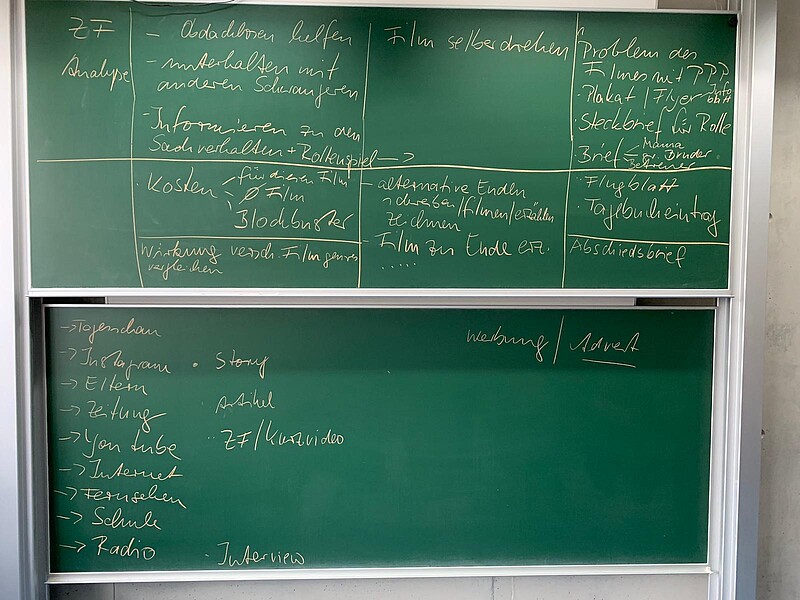 ZF
Analyse
- Obdachlosen helfen
- unterhalten mit
anderen Schwangeren
- Informieren zu den
Sachverhalten + Rollenspiel →
Film selber drehen
Problem des
Filmes mit PPP
· Plakat / Flyer Infoblatt
· Steckbrief für Rolle
· Brief Mama
Bruder
Betreuer
· Kosten für diesen Film
Ø Film
Blockbuster
Wirkung versch. Filmgenres
vergleichen
- alternative Enden
schreiben/filmen/erzählen
zeichnen
- Film zu Ende erz.
.....
· Flugblatt
· Tagebucheintrag
Abschiedsbrief
→ Tagesschau
→ Instagram · Story
→ Eltern
→ Zeitung · Artikel
→ You tube · ZF/Kurzvideo
→ Internet
→ Fernsehen
→ Schule
→ Radio · Interview
Werbung / Advert